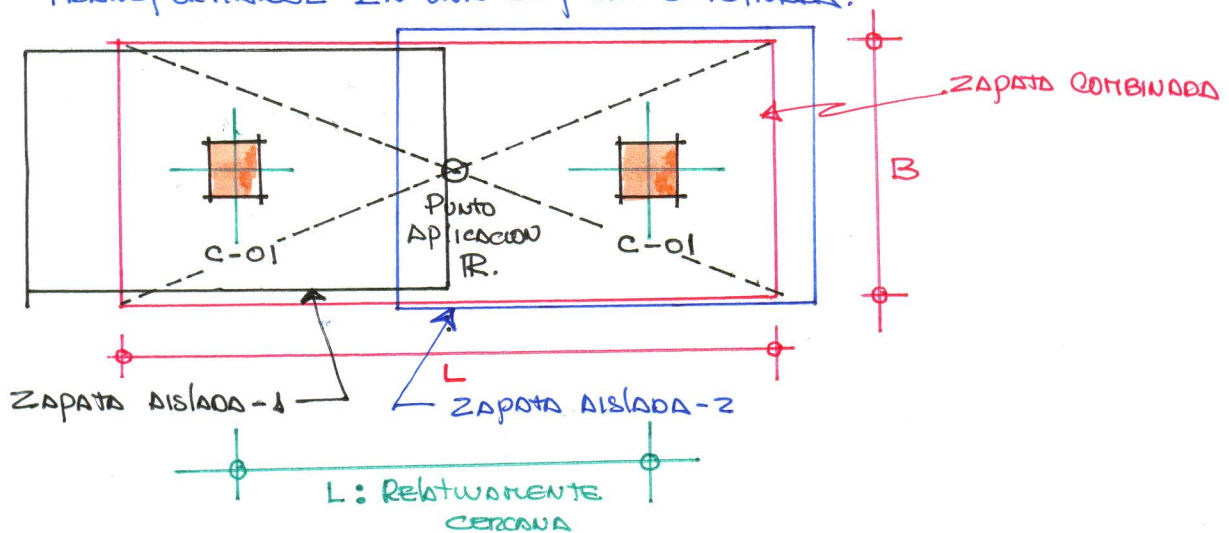 EN UNA
ZAPATA COMBINADA
B
PUNTO
APLICACION
R.
C-01
C-01
L
ZAPATA AISLADA-1
ZAPATA AISLADA-2
L: RELATIVAMENTE
CERCANA